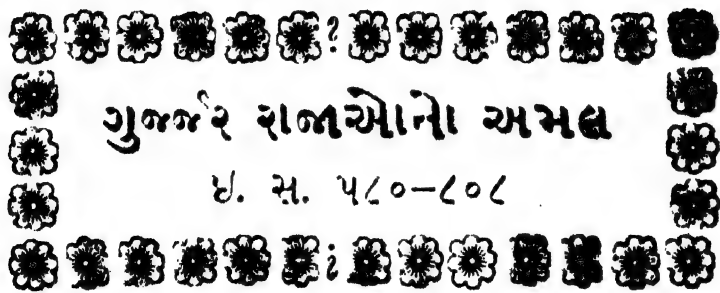 ગુર્જર રાજાઓનો અમલ
ઇ. સ. ૫૮૦—૮૦૮